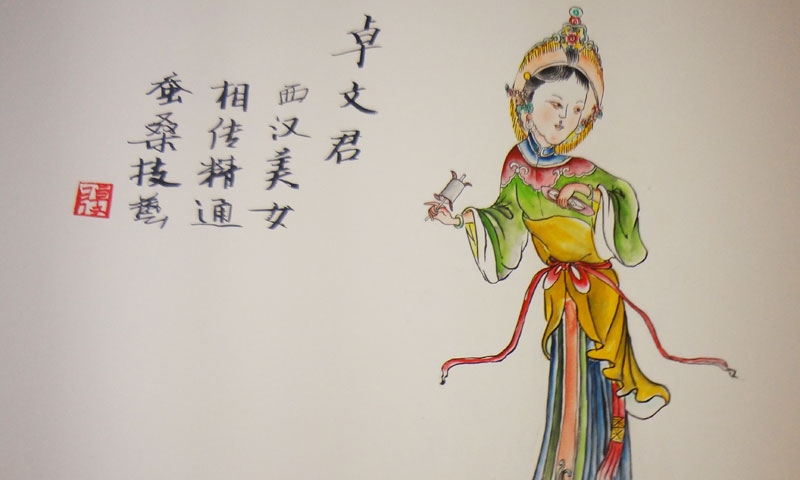 卓文君
西汉美女
相传精通
蚕桑技艺